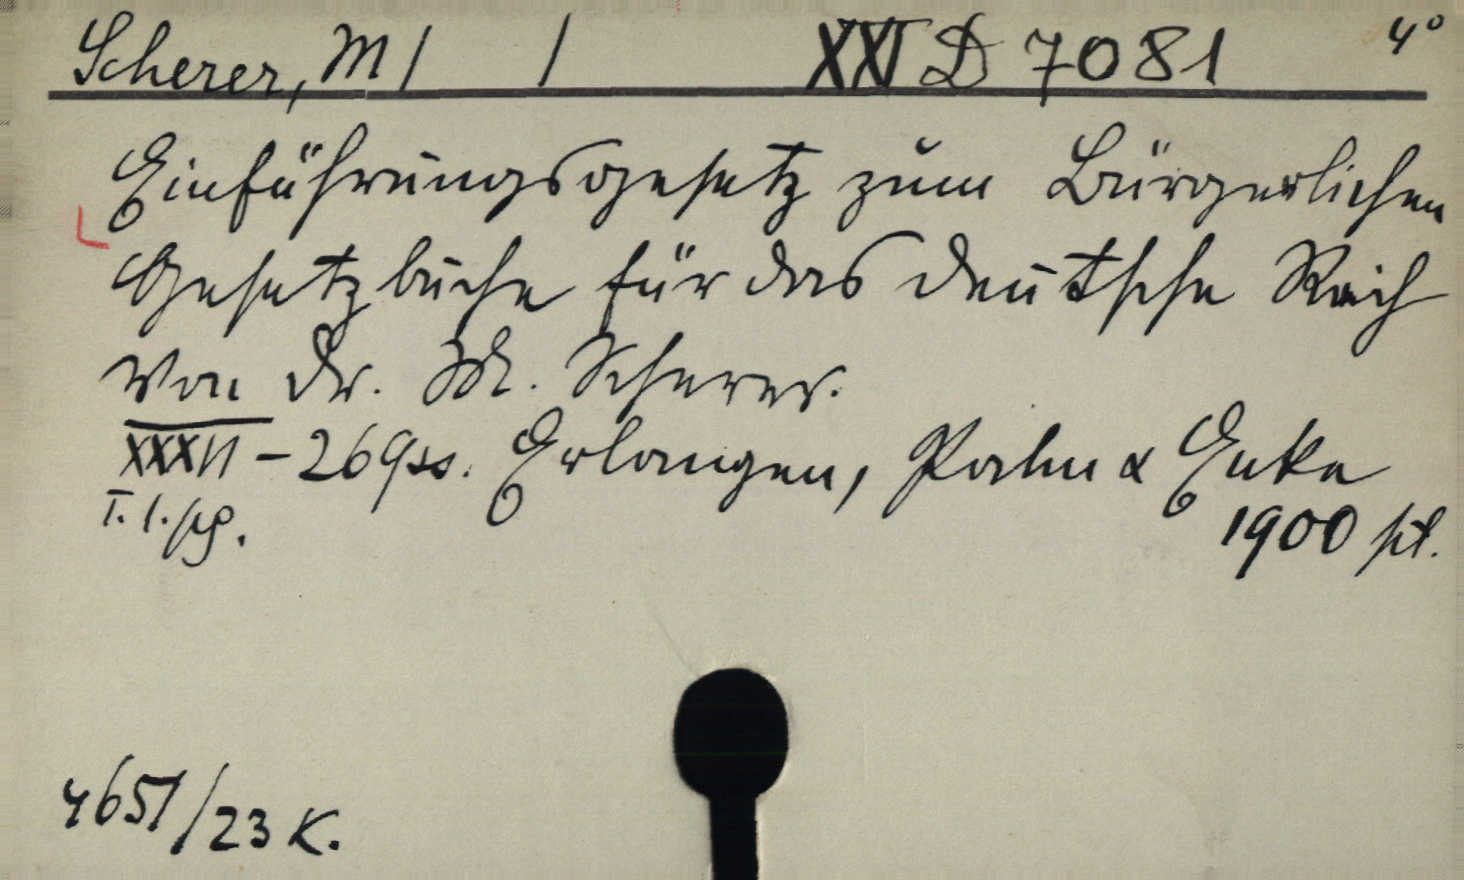 Scherer, M / / XXI D 7081 4°
Einführungsgesetz zum Bürgerlichen
Gesetzbuche für das deutsche Reich
von Dr. M. Scherer.
XXXVI - 269 ss. Erlangen, Palm & Enke
1900 pt.
4651/23 K.